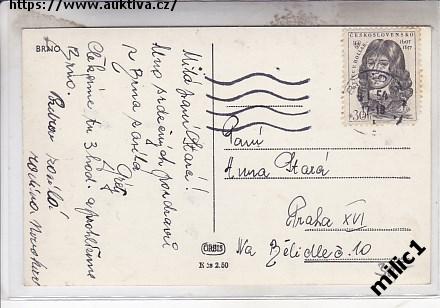 https://www.auktiva.cz/
BRNO
Milá paní Stará!
Mno srdečných pozdravů
z Brna zasílá
Čekáme tu 3 hod. a prohlížíme
Brno.
Pozdrav zasílá
rodina
ČESKOSLOVENSKO
1607
1677
30h
Paní
Anna Stará
Praha XVI
Na Bělidle č. 10
ORBIS
Kčs 2.50
milic1